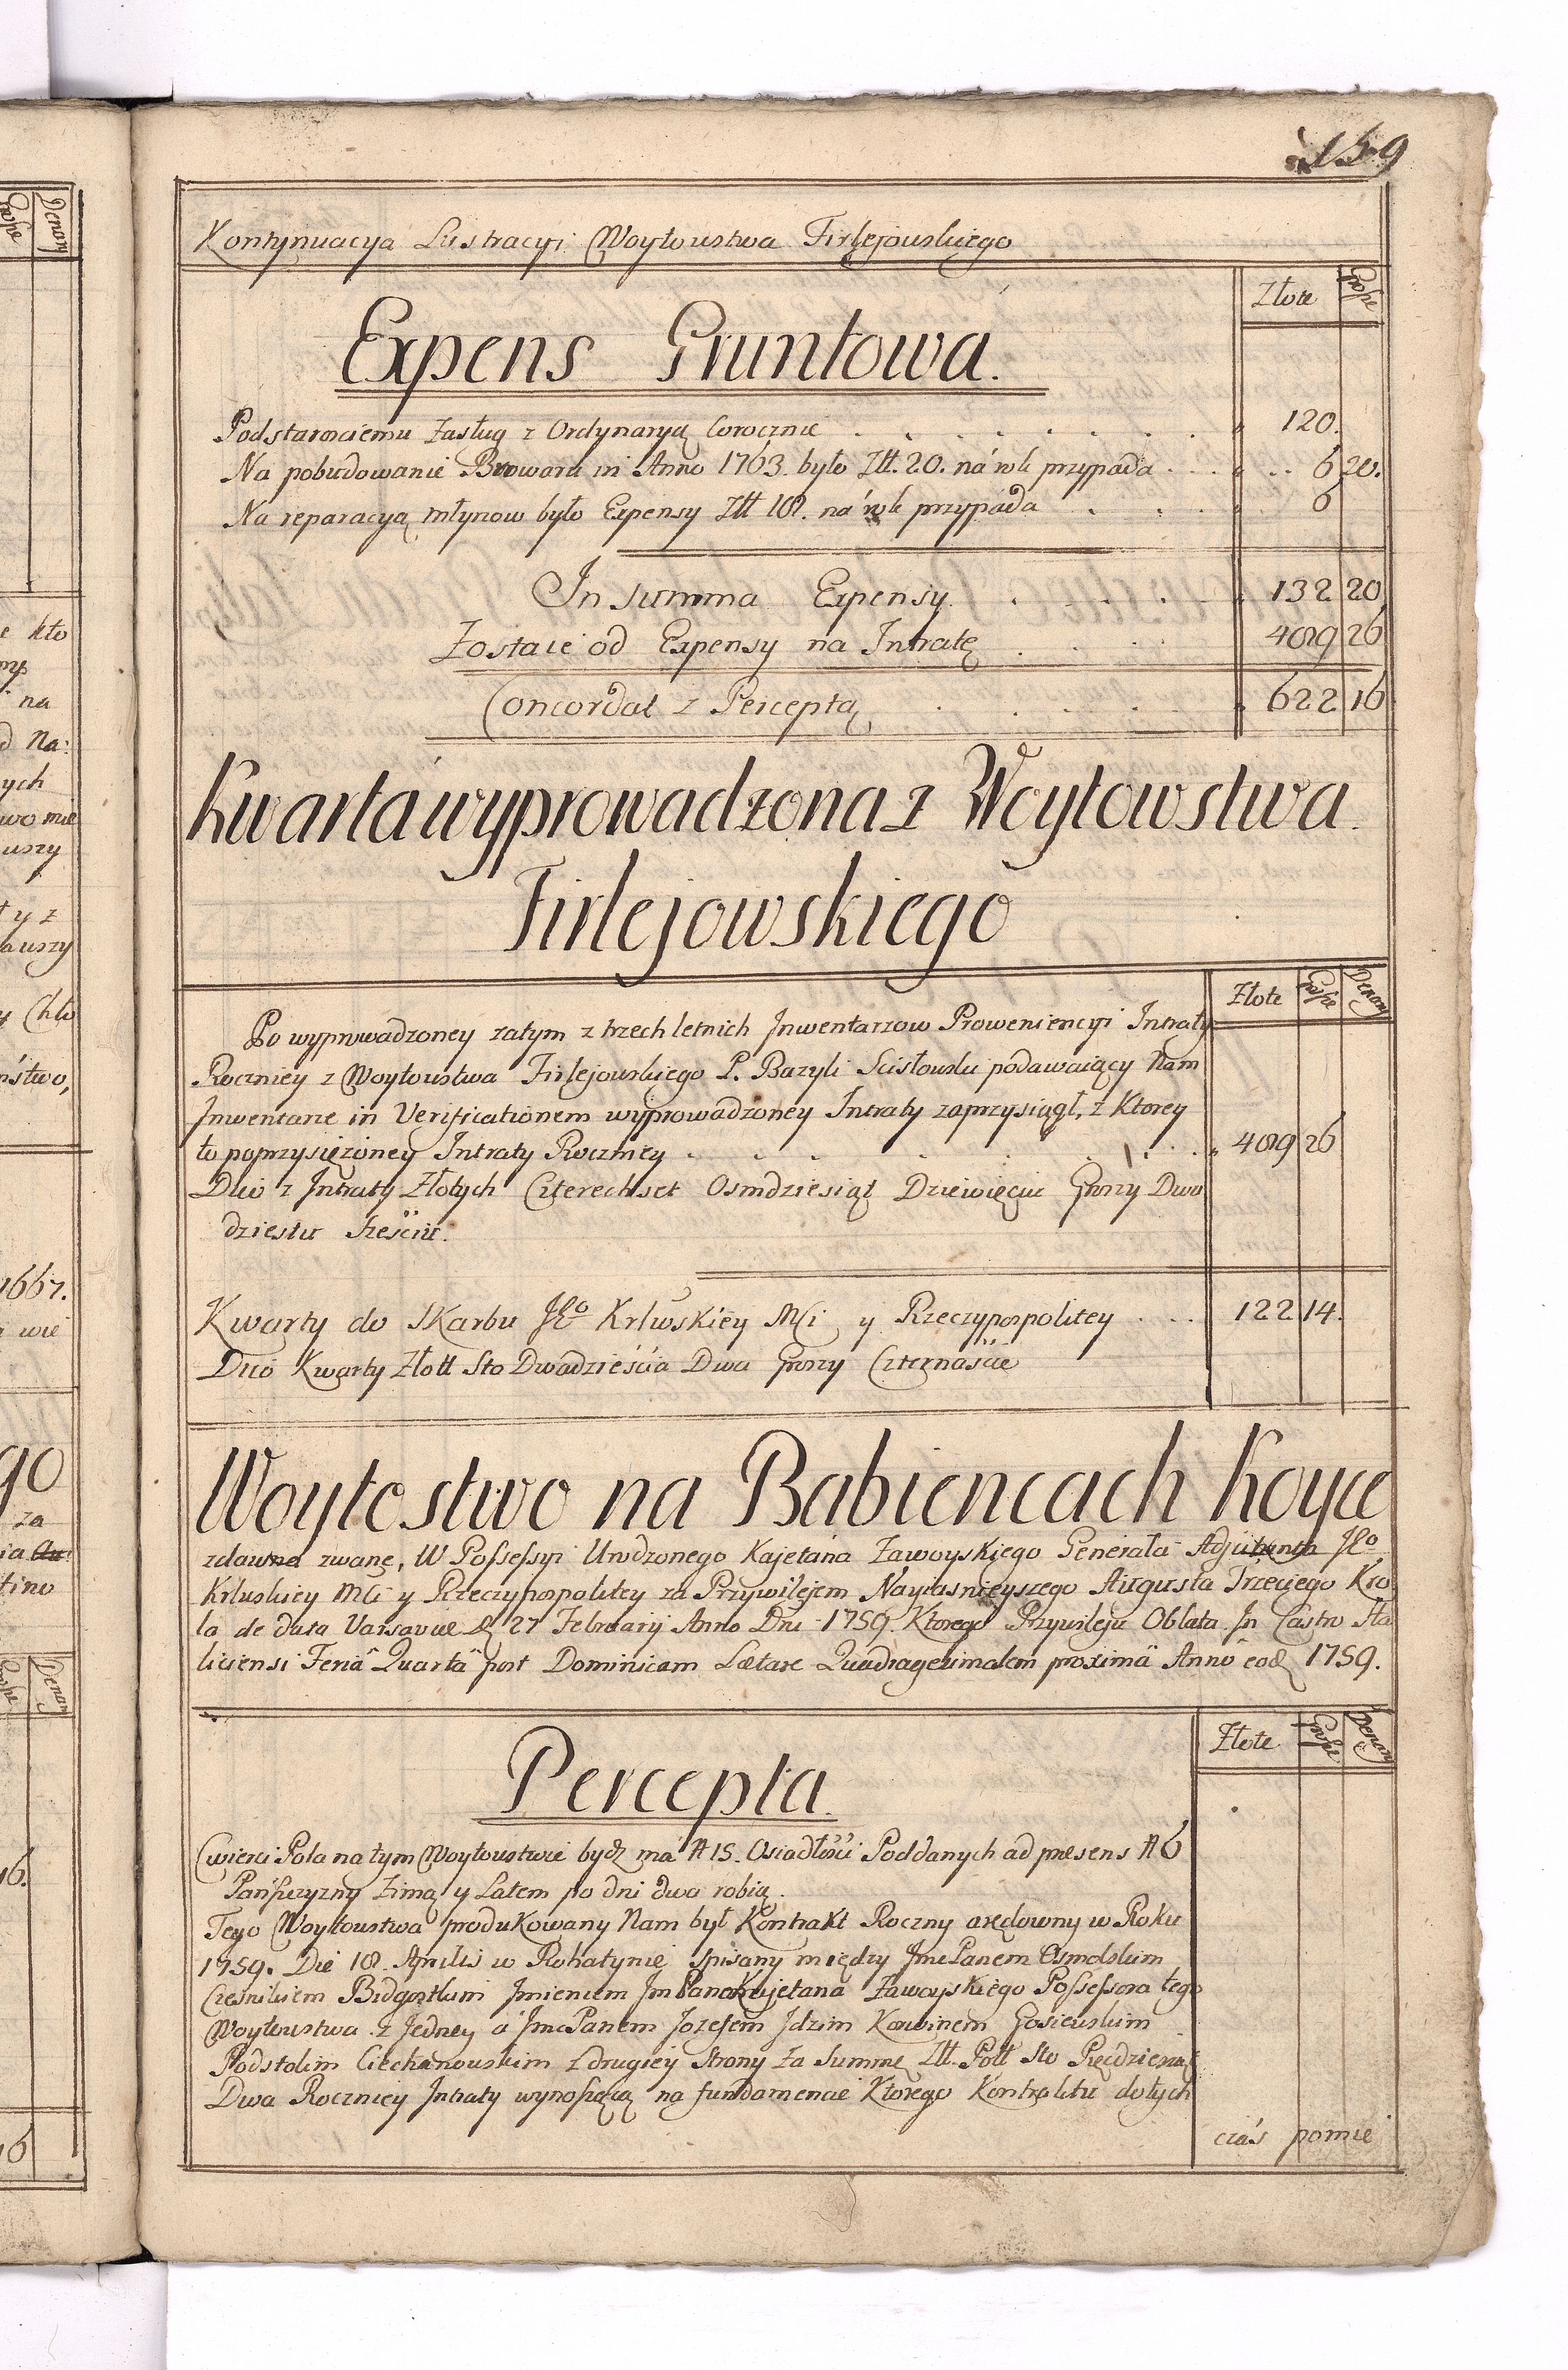 159
Kontynuacya Lustracyi Woytowstwa Firlejowskiego
Złote Grosze
Expens Gruntowa.
Podstarosciemu zasług z Ordynaryą Corocznie 120.
Na pobudowanie Browaru in Anno 1763. było Złł. 20. na rok przypada 6 20.
Na reparacyą młynow było Expensy Złł 18. na rok przypada 6
In Summa Expensy 132 20
Zostaie od Expensy na Intratę 489 26
Concordat z Perceptą 622 16
Kwarta wyprowadzona z Woytowstwa
Firlejowskiego
Złote Grosze Denary
Po wyprowadzoney zatym z trzech letnich Inwentarzow Proweniencyi Intraty
Roczniey z Woytowstwa Firlejowskiego P. Bazyli Scisłowski podawaiący Nam
Inwentarze in Verificationem wyprowadzoney Intraty zaprzysiągł, z Ktorey
to poprzysiężoney Intraty Roczniey 489 26
Dico z Intraty Złotych Czterechset Osmdziesiąt Dziewięciu Groszy Dwu
dziestu Sześciu.
Kwarty do Skarbu JKo Krlwskiey Mci y Rzeczypospolitey 122 14.
Dico Kwarty Złott Sto Dwadzieścia Dwa Groszy Czternaście
Woytostwo na Babiencach Koyce
zdawna zwane, W Possessyi Urodzonego Kajetana Zawoyskiego Generała Adjutanta JKo
Krlwskiey Mci y Rzeczypospolitey za Przywilejem Nayiasnieyszego Augusta Trzeciego Kro
la de data Varsaviæ D 27 Februarij Anno Dni 1759. Ktorego Przywileju Oblata In Castro Ha
liciensi Feriâ Quartâ post Dominicam Lætare Quadragesimalem proximâ Annô eod 1759.
Złote Grosze Denary
Percepta.
Cwierci Pola na tym Woytowstwie bydź ma N 15. Osiadłości Poddanych ad præsens N 6
Pańszczyzny Zimą y Latem po dni dwa robią.
Tego Woytowstwa produkowany Nam był Kontrakt Roczny arędowny w Roku
1759. Die 18. Aprilis w Rohatynie spisany między JmcPanem Osmolskim
Czesnikiem Bidgostkim Jmieniem Jm Pana Kajetana Zawoyskiego Possessora tego
Woytowstwa z Jedney a JmcPanem Jozefem Jdzim Korwinem Gosiewskim
Podstolim Ciechanowskim z drugiey Strony Za Summę Złł. Poll Sto Pięćdziesiąt
Dwa Roczniey Intraty wynoszącą na fundamencie Ktorego Kontraktu dotych
czás pomie